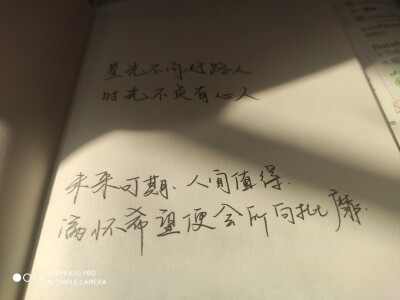 星光不问赶路人
时光不负有心人
未来可期、人间值得.
满怀希望便会所向披靡.